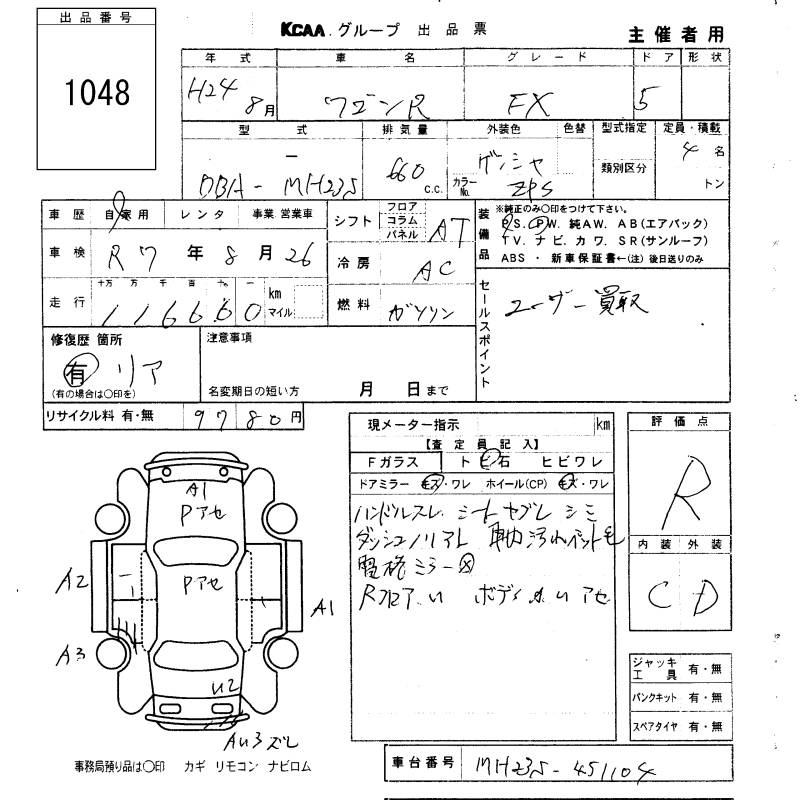 出品番号
1048
KCAA グループ 出品票
主催者用
年式 車名 グレード ドア 形状
H24 8月 ワゴンR FX 5
型式 排気量 外装色 色替 型式指定 定員・積載
DBA-MH23S 660 c.c. ゲンシャ 4名
カラーNo. ZPS 類別区分 トン
車歴 自家用 レンタ 事業 営業車
シフト フロア コラム パネル AT
装備品 ※純正のみ〇印をつけて下さい。
P.S. P.W. 純AW. AB(エアバック)
TV. ナビ. カワ. SR(サンルーフ)
ABS ・ 新車保証書←(注) 後日送りのみ
車検 R7年8月26
冷房 AC
走行 十万 万 千 百 十 一 km マイル
116660
燃料 ガソリン
セールスポイント
ユーザー買取
修復歴 箇所
有 リア
(有の場合は〇印を)
注意事項
名変期日の短い方 月 日まで
リサイクル料 有・無 9780円
現メーター指示 km
【査定員記入】
Fガラス ト ビ 石 ヒビワレ
ドアミラー キズ・ワレ ホイール(CP) キズ・ワレ
ハンドルスレ シートヤブレ シミ
電格ミラー
Rフロアu
評価点
R
内装 外装
C D
A1
Pアセ
Pアセ
A2
A1
A3
U2
AU3ズレ
ジャッキ 工具 有・無
パンクキット 有・無
スペアタイヤ 有・無
事務局預り品は〇印 カギ リモコン ナビロム
車台番号 MH23S-451104